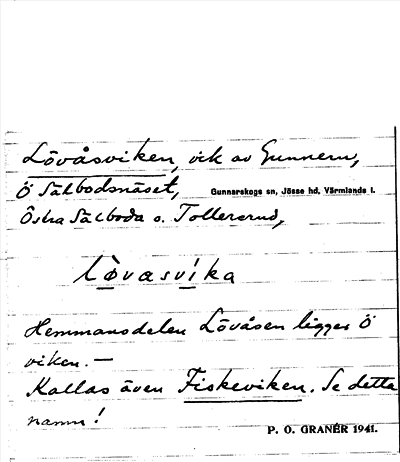 Lövåsviken, vik av Gunnern,
Ö Sälbodsnäset,
Gunnarskogs sn, Jösse hd, Värmlands l.
Östra Sälboda o. Tollersrud,
lòvasvika
Hemmansdelen Lövåsen ligger Ö
viken. —
Kallas även Fiskeviken. Se detta
namn!
P. O. GRANÉR 1941.